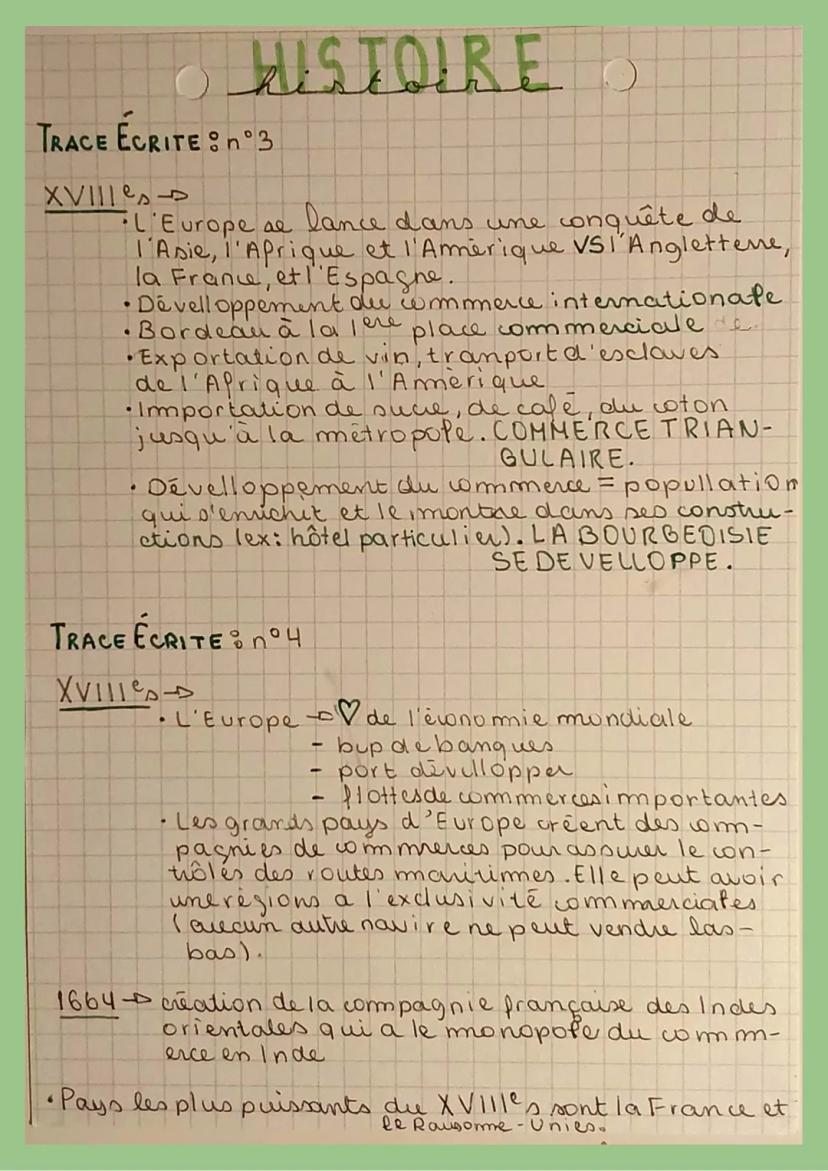 HISTOIRE
histoire
TRACE ÉCRITE : n°3
XVIIIes →
• L'Europe se lance dans une conquête de
l'Asie, l'Afrique et l'Amérique VS l'Angletterre,
la France, et l'Espagne.
• Dévelloppement du commerce internationale
• Bordeau à la 1ère place commerciale
• Exportation de vin, tranport d'esclaves
de l'Afrique à l'Amérique
• Importation de sucre, de café, du coton
jusqu'à la métropole. COMMERCE TRIAN-
GULAIRE.
• Dévelloppement du commerce = popullation
qui s'enrichit et le montre dans ses constru-
ctions (ex: hôtel particulier). LA BOURGEOISIE
SE DEVELLOPPE.
TRACE ÉCRITE : n°4
XVIIIes →
• L'Europe → ♡ de l'économie mondiale
- bcp de banques
- port dévellopper
- flottes de commerces importantes
• Les grands pays d'Europe créent des com-
pagnies de commerces pour assurer le con-
trôles des routes maritimes. Elle peut avoir
une régions a l'exclusivité commerciales
(aucun autre navire ne peut vendre las-
bas).
1664 → création de la compagnie française des Indes
orientales qui a le monopole du comm-
erce en Inde
• Pays les plus puissants du XVIIIes sont la France et
le -Unies.